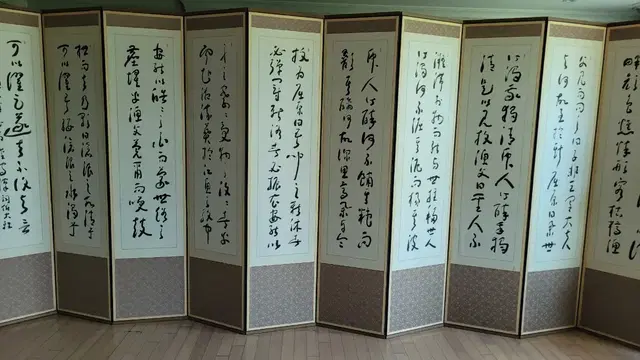 畔顏色憔悴形容枯槁漁
父見而問之曰子非三閭大夫
與何故至於斯屈原曰擧世
皆濁我獨清衆人皆醉我獨
醒是以見放漁父曰聖人不
凝滯於物而能與世推移世人
皆濁何不淈其泥而揚其波
衆人皆醉何不餔其糟而
歠其醨何故深思高擧自令
放爲屈原曰吾聞之新沐者
必彈冠新浴者必振衣安能以
身之察察受物之汶汶者乎
寧赴湘流葬於江魚之腹中
安能以皓皓之白而蒙世俗之
塵埃乎漁父莞爾而笑鼓
枻而去乃歌曰滄浪之水清兮
可以濯吾纓滄浪之水濁兮
可以濯吾足遂去不復與言